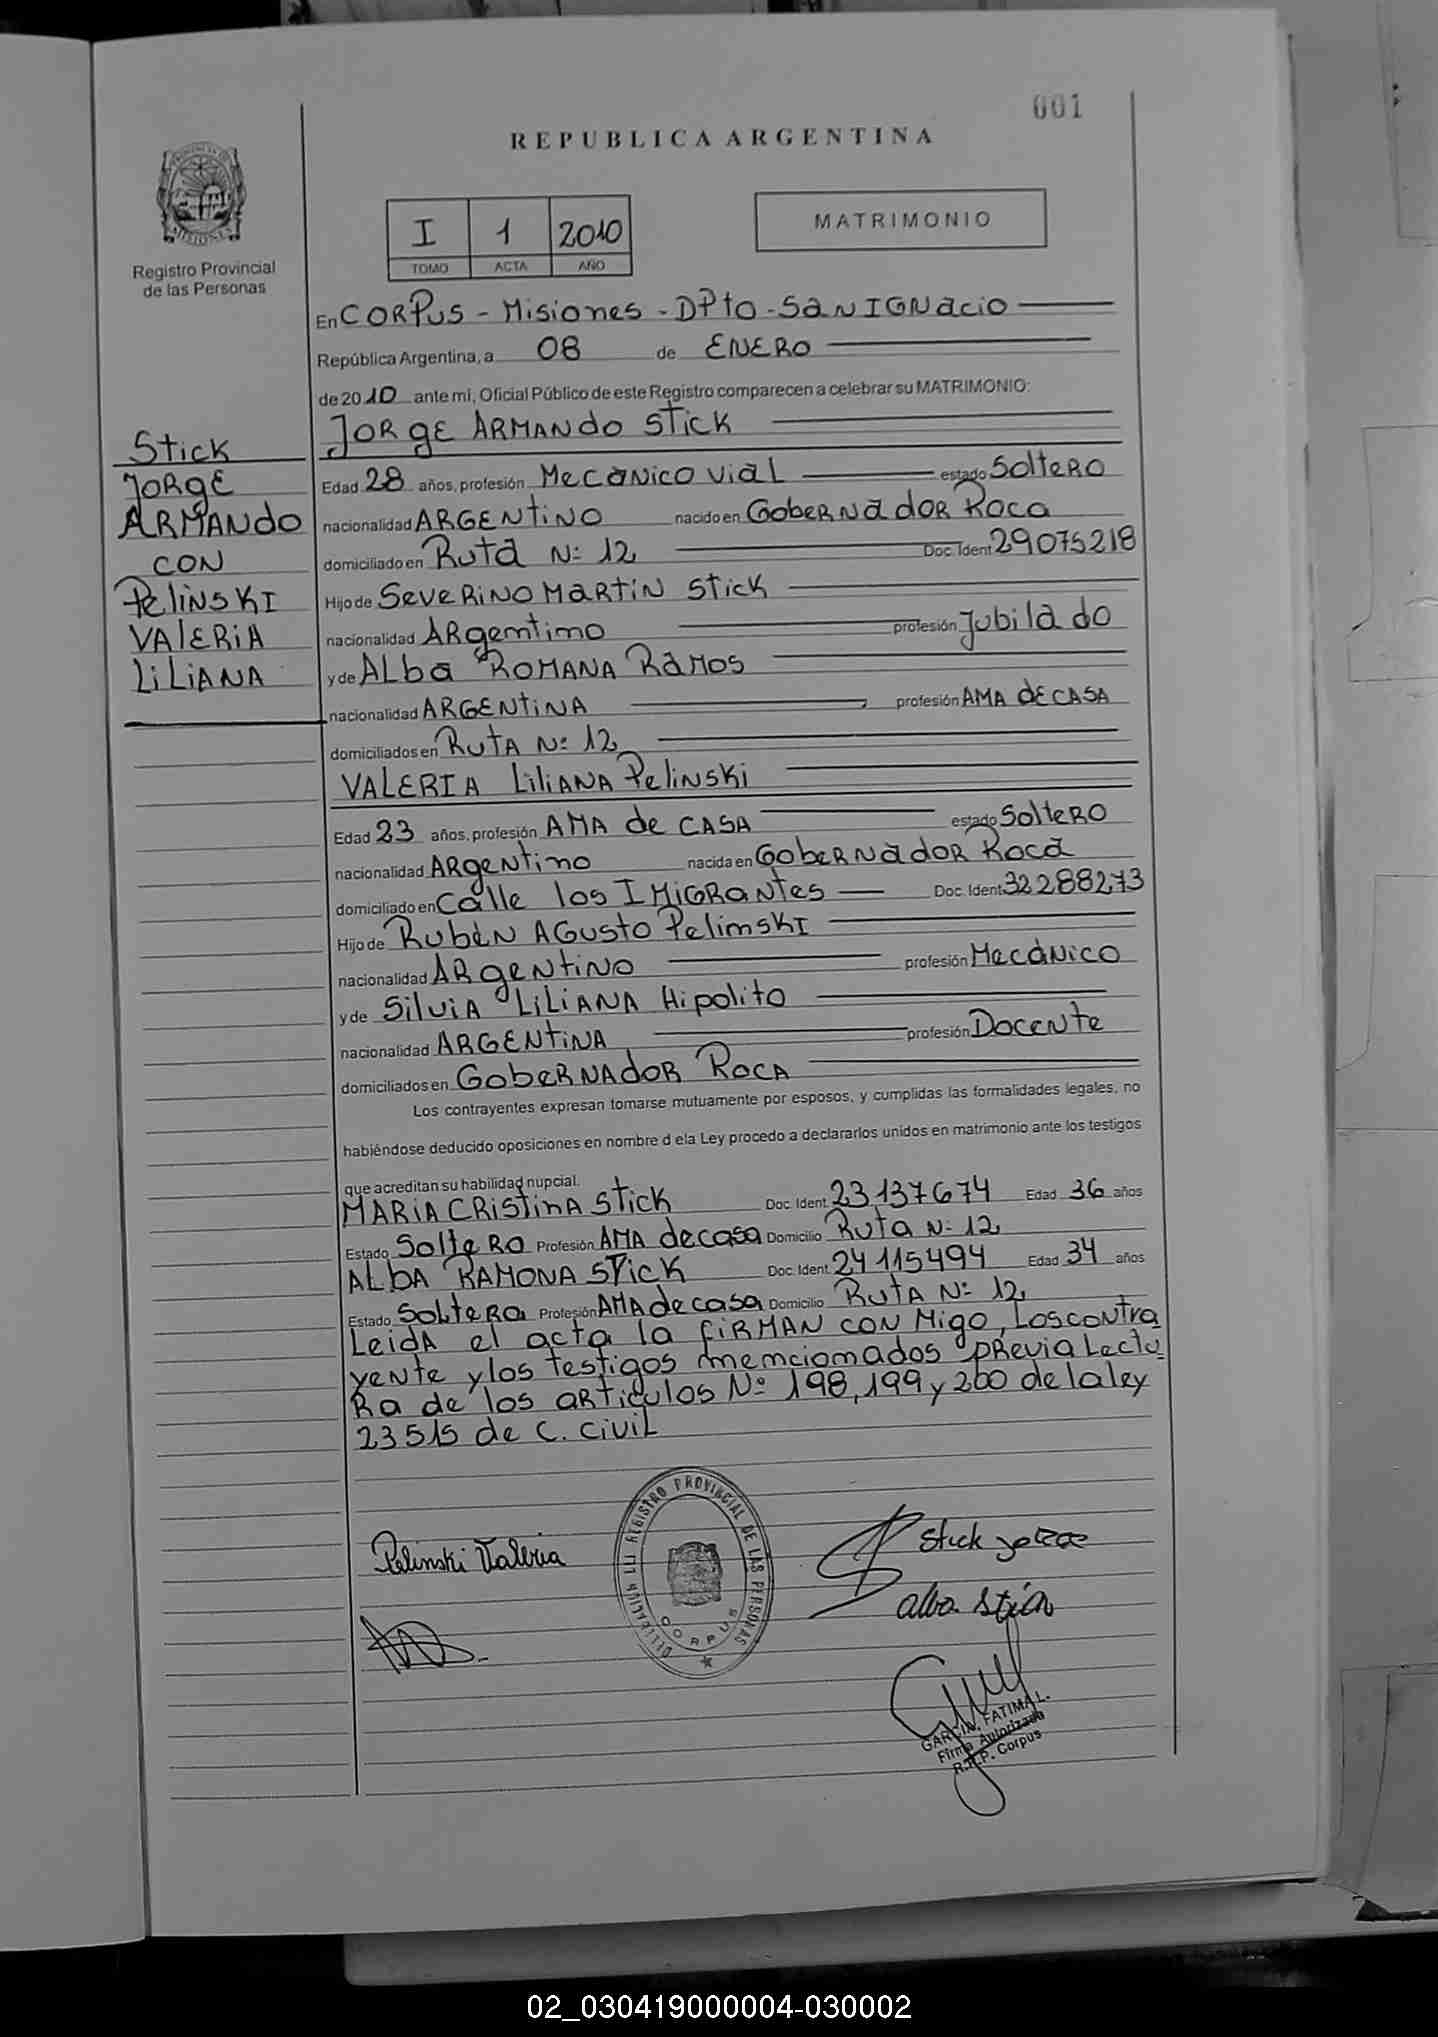 001
REPUBLICA ARGENTINA
PROVINCIA DE
MISIONES
Registro Provincial
de las Personas
I 1 2010
TOMO ACTA AÑO
MATRIMONIO
En CORPUS - Misiones - DPto - San IGNacio
República Argentina, a 08 de ENERO
de 2010 ante mí, Oficial Público de este Registro comparecen a celebrar su MATRIMONIO:
Stick
JORGE
ARMANdo
CON
PeliNSKI
VALERiA
LiLiANA
JORGE ARMANdo Stick
Edad 28 años, profesión Mecanico vial estado SolteRO
nacionalidad ARGENtiNO nacido en GobeRNadoR Roca
domiciliado en Ruta N: 12 Doc. Ident 29075218
Hijo de SeveRiNO MaRtiN Stick
nacionalidad ARgentino profesión Jubilado
y de ALba ROMANA RaMos
nacionalidad ARGENtiNA profesión AMA de CASA
domiciliados en RutA N: 12
VALERIA LiliANA PeliNSki
Edad 23 años, profesión AMA de CASA estado SolteRO
nacionalidad ARgeNtiNo nacida en GobeRNadoR Roca
domiciliado en Calle los IMiGRaNtes Doc. Ident 32288273
Hijo de RubéN AGusto PelinsKI
nacionalidad ARgeNtiNO profesión MecáNico
y de SilviA LiLiANA Hipolito
nacionalidad ARGENtiNA profesión DoceNte
domiciliados en GobeRNAdoR RocA
Los contrayentes expresan tomarse mutuamente por esposos, y cumplidas las formalidades legales, no
habiéndose deducido oposiciones en nombre d ela Ley procedo a declararlos unidos en matrimonio ante los testigos
que acreditan su habilidad nupcial.
MARiA CRistinA Stick Doc. Ident 23137674 Edad 36 años
Estado SolteRO Profesión AMA de casa Domicilio Ruta N: 12
ALbA RAMONA STick Doc. Ident 24115494 Edad 34 años
Estado SolteRa Profesión AMA de casa Domicilio RutA N: 12
LeidA el acta la fiRMAN coN Migo, Los contra
yeNte y los testigos mencionados pRevia Lectu
Ra de los aRticulos Nº 198, 199 y 200 de la ley
23515 de C. Civil
Pelinski Valeria
Stick Jorge
alba Stick
DELEGACIÓN REGISTRO PROVINCIAL DE LAS PERSONAS
CORPUS
GARCIA, FATIMA L.
Firma Autorizada
R.P.P. Corpus
02_030419000004-030002